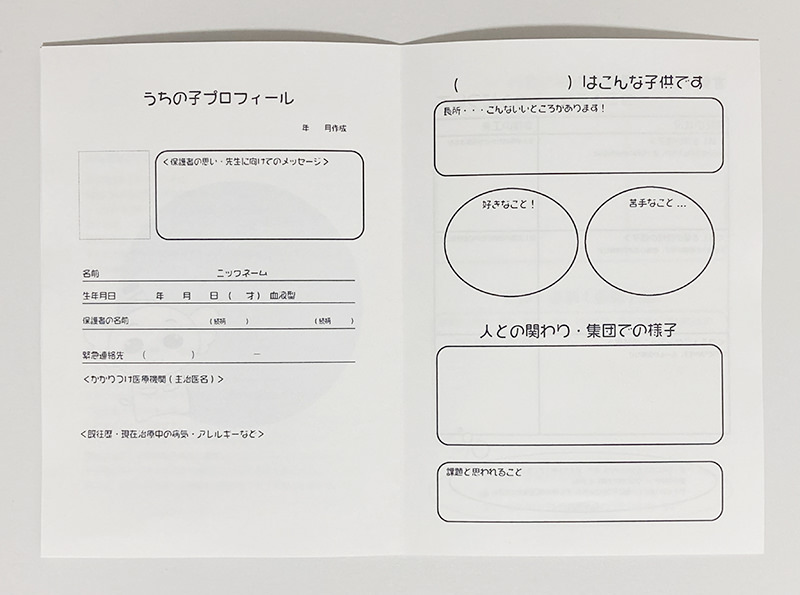 うちの子プロフィール
年 月作成
<保護者の思い・先生に向けてのメッセージ>
名前 ニックネーム
生年月日 年 月 日 ( 才) 血液型
保護者の名前 (続柄 ) (続柄 )
緊急連絡先 ( ) －
<かかりつけ医療機関(主治医名)>
<既往歴・現在治療中の病気・アレルギーなど>
( )はこんな子供です
長所・・・こんないいところがあります!
好きなこと!
苦手なこと...
人との関わり・集団での様子
課題と思われること